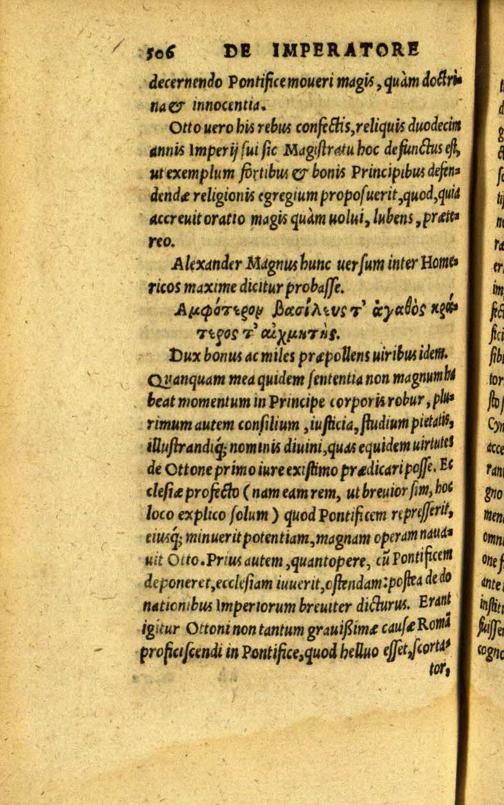 506 DE IMPERATORE
decernendo Pontifice moueri magis, quàm doctri-
na & innocentia.
Otto uero his rebus confectis, reliquis duodecim
annis Imperij sui sic Magistratu hoc defunctus est,
ut exemplum fortibus & bonis Principibus defen-
dendæ religionis egregium proposuerit, quod, quia
accreuit oratio magis quàm uolui, lubens, præte-
reo.
Alexander Magnus hunc uersum inter Home-
ricos maxime dicitur probasse.
Αμφότερον βασίλευς τ' ἀγαθὸς κρά-
τερος τ' αἰχμητὴς.
Dux bonus ac miles præpollens uiribus idem.
Quanquam mea quidem sententia non magnum ha
beat momentum in Principe corporis robur, plu-
rimum autem consilium, iusticia, studium pietatis,
illustrandiq; nominis diuini, quas equidem uirtutes
de Ottone primo iure existimo prædicari posse. Ec
clesiæ profecto (nam eam rem, ut breuior sim, hoc
loco explico solum) quod Pontificem represserit,
eiusq; minuerit potentiam, magnam operam naua-
uit Otto. Prius autem, quantopere, cũ Pontificem
deponeret, ecclesiam iuuerit, ostendam: postea de do
nationibus Imperiorum breuiter dicturus. Erant
igitur Ottoni non tantum grauißimæ causæ Romã
proficiscendi in Pontifice, quod helluo esset, scorta-
tor,